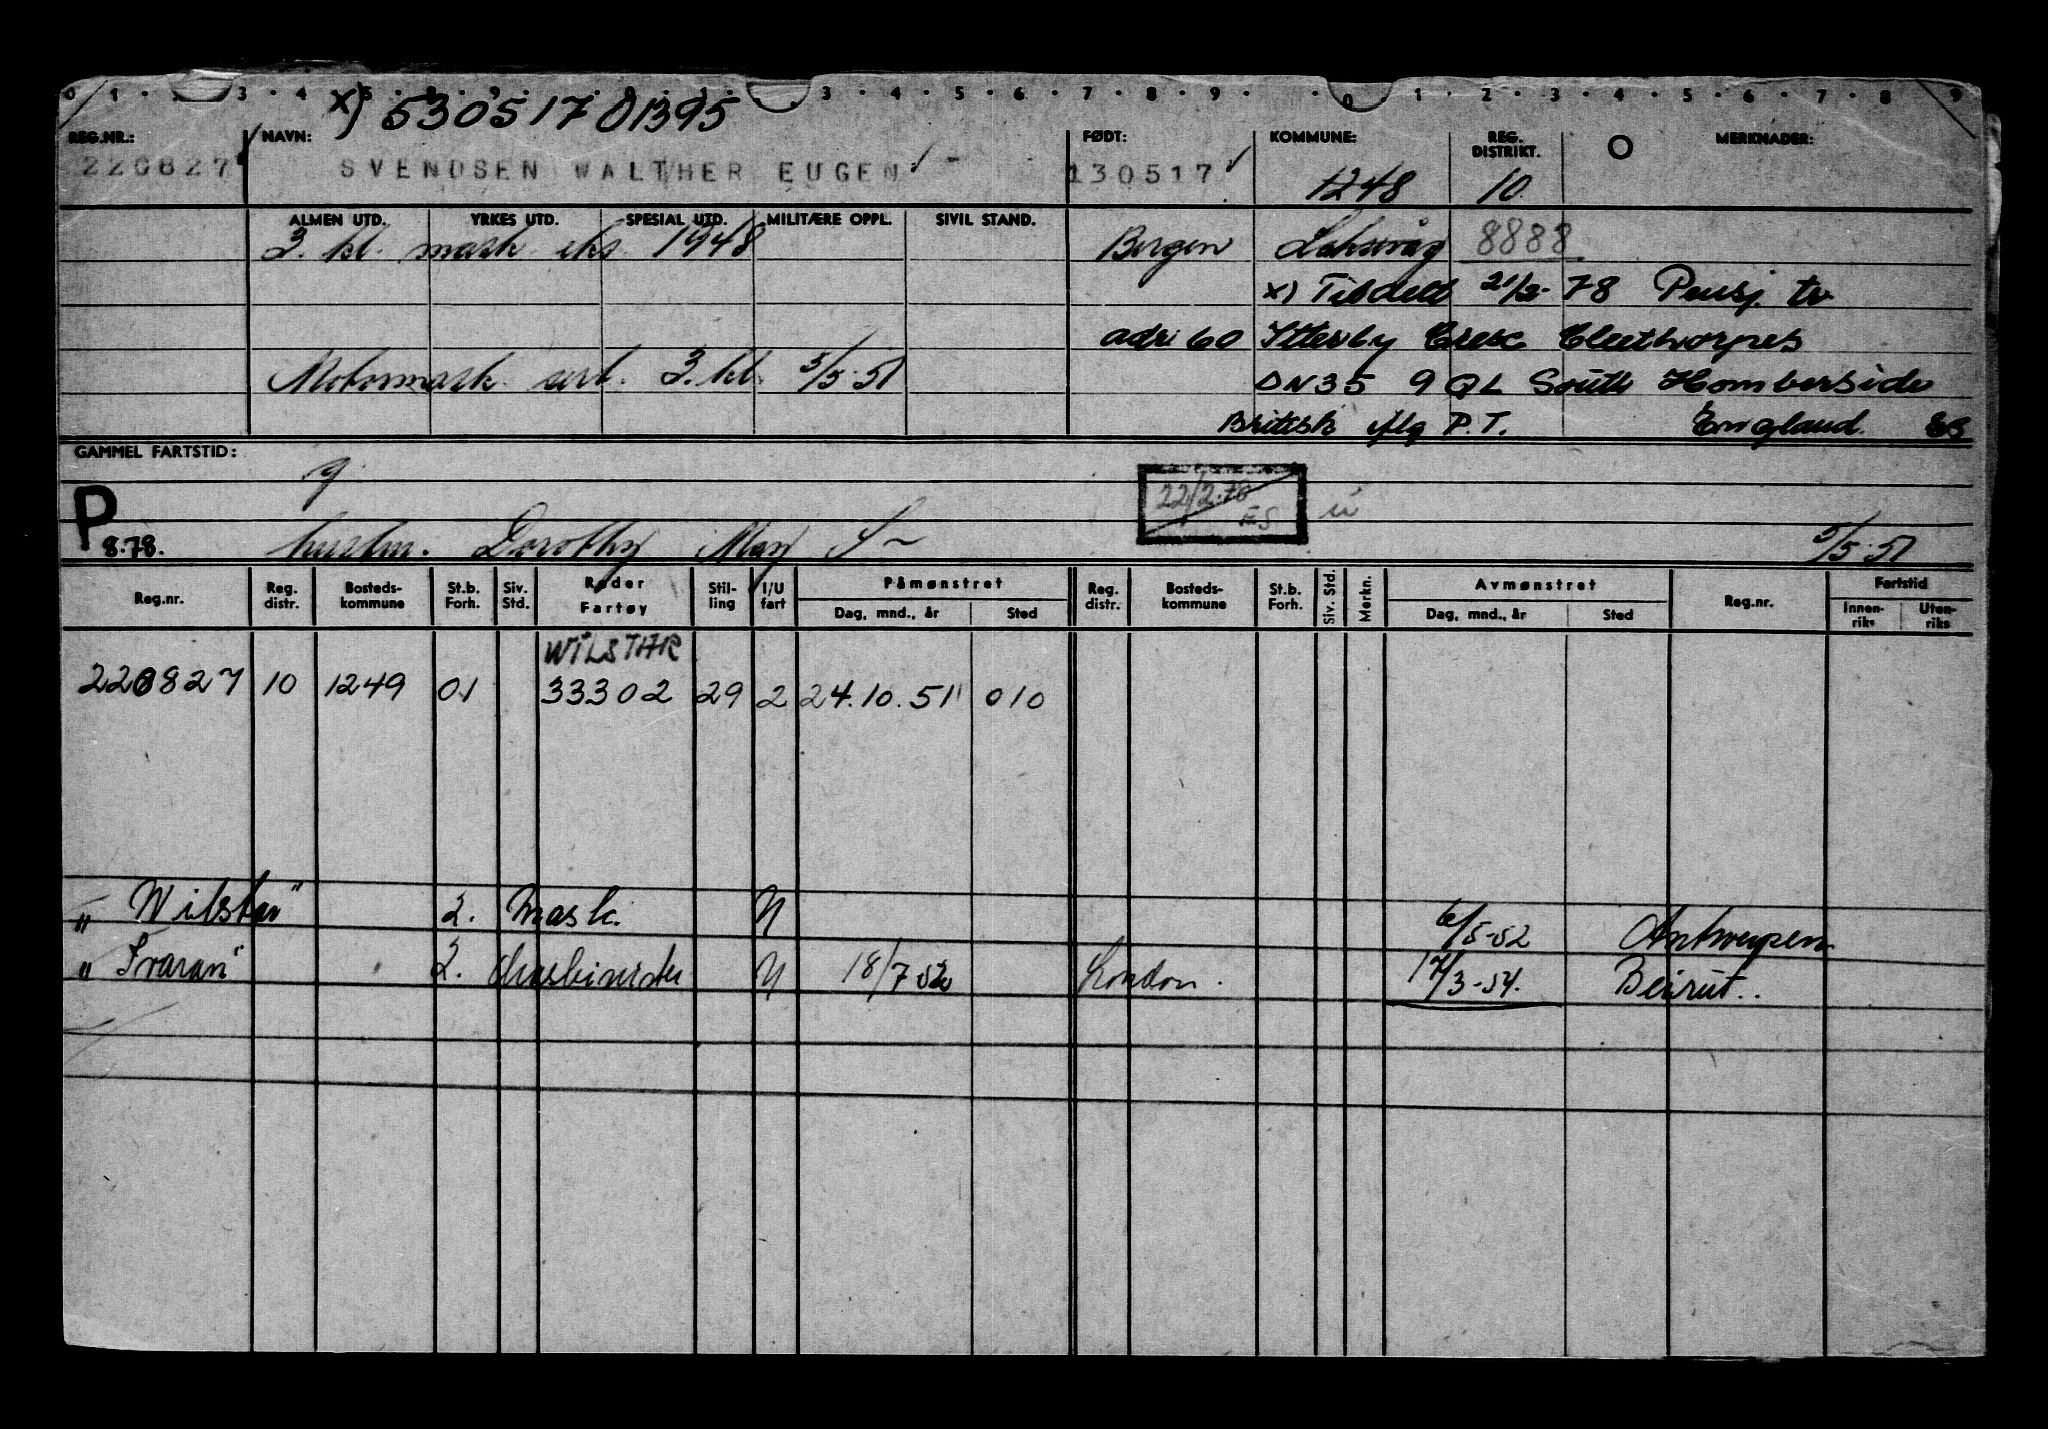 0 1 . 3 . 4 3 . 4 . 5 . 6 . 7 . 8 . 9 . 0 . 1 . 2 . 3 . 4 . 5 . 6 . 7 . 8 9
x) 53051701395
REG.NR.: NAVN: FØDT: KOMMUNE: REG. DISTRIKT. MERKNADER:
220827 SVENDSEN WALTHER EUGEN 130517 1248 10
ALMEN UTD. YRKES UTD. SPESIAL UTD. MILITÆRE OPPL. SIVIL STAND.
3. kl. mask eks 1948 Bergen Laksevåg 8888
x) Tildelt 21/2-78 Pensj. tr.
adr: 60 Itterby Cresc Cleethorpes
Motormask. sert. 3. kl. 5/5-51 DN35 9QL South Homberside
Britisk flg P.T. England. ES
GAMMEL FARTSTID:
9
22/2-78
ES
P
8.78. hustru. Dorothy May S~ 5/5-51
Reg.nr. Reg. distr. Bosteds-kommune St.b. Forh. Siv. Std. Reder Fartøy Stil-ling I/U fart Påmønstret Dag, mnd., år Sted Reg. distr. Bosteds-kommune St.b. Forh. Siv. Std. Merkn. Avmønstret Dag, mnd., år Sted Reg.nr. Fartstid Innen-riks Uten-riks
WILSTAR
220827 10 1249 01 33302 29 2 24.10.51 010
"Wilstar" 2. mask. U 6/5-52 Antwerpen
"Ivaran" 2. Maskinister U 18/7 52 London. 17/3-54. Beirut..